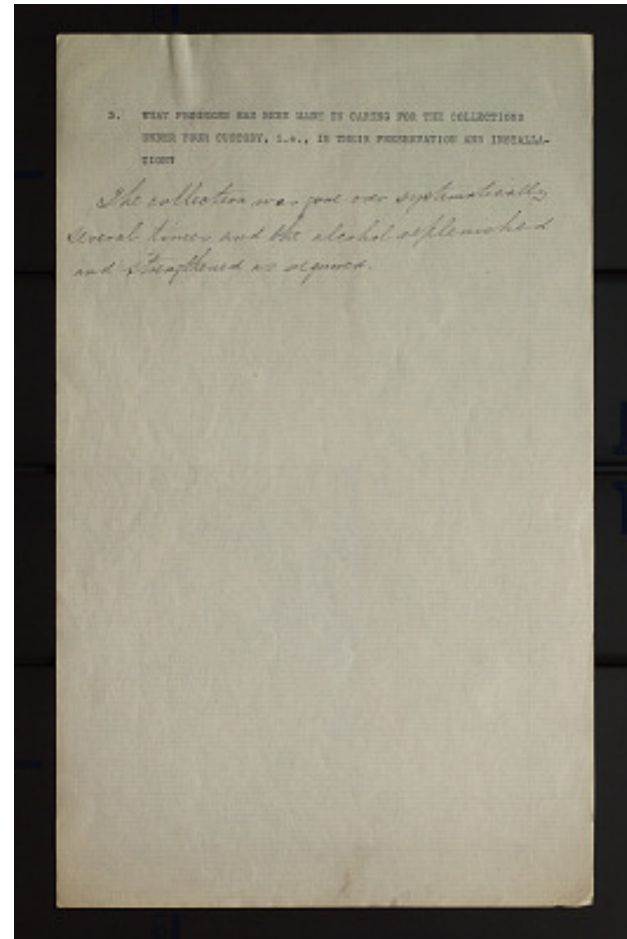 3. WHAT PROGRESS HAS BEEN MADE IN CARING FOR THE COLLECTIONS
UNDER YOUR CUSTODY, i.e., IN THEIR PRESERVATION AND INSTALLA-
TION?
The collection was gone over systematically
several times and the alcohol replenished
and strengthened as required.